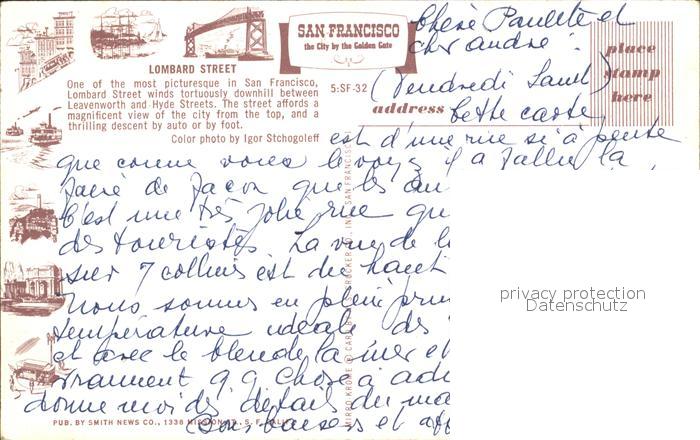 SAN FRANCISCO
the City by the Golden Gate
LOMBARD STREET
One of the most picturesque in San Francisco,
Lombard Street winds tortuously downhill between
Leavenworth and Hyde Streets. The street affords a
magnificent view of the city from the top, and a
thrilling descent by auto or by foot.
Color photo by Igor Stchogoleff
5:SF-32
address
place
stamp
here
Chère Paulette et
cher andré :
(Vendredi Saint)
Cette carte
est d'une rue si à pente
que comme vous le voyez il a fallu la
faire de façon que les au
C'est une très jolie rue qu
des touristes. La vue de l
sur 7 collines est du haut
Nous sommes en plein prin
température idéale des
et avec le bleu de la mer et
vraiment q.q. chose à adm
donne moi des détails du ma
Bons baisers et aff
privacy protection
Datenschutz
PUB. BY SMITH NEWS CO., 1336 MISSION ST., S. F. CALIF.